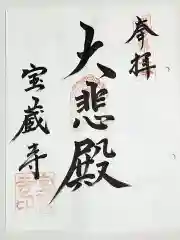 奉拝
大悲殿
宝蔵寺